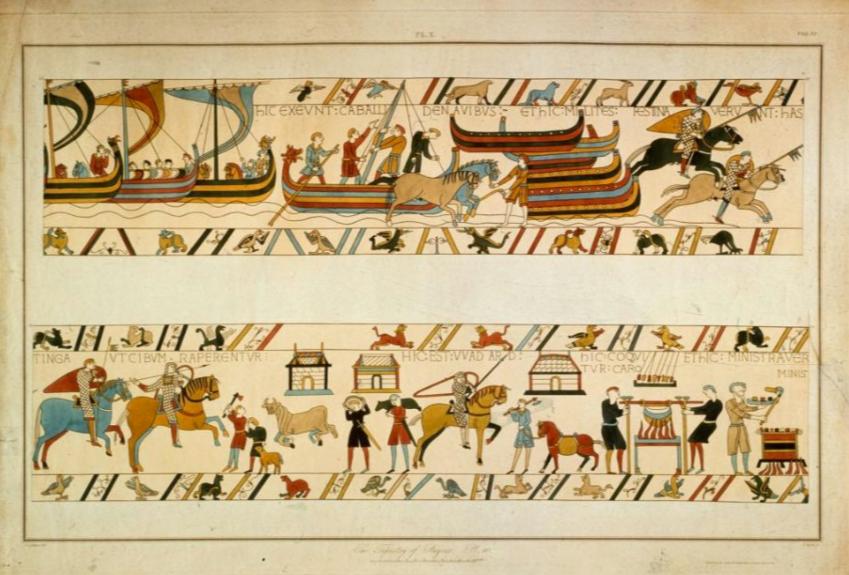 PL. X.
HIC EXEVNT: CABALLI DENAVIBVS:- ET hIC: MILITES: FESTINAVERVNT: hAS
TINGA VT CIBVM · RAPERENTVR: HIC·EST: VVADARD: hIC: COQV ETHIC· MINISTRAVER
TVR: CARO MINIS
The Tapestry of Bayeux. Pl.